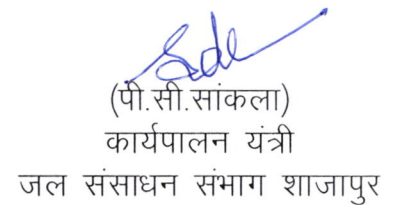 (पी.सी.सांकला)
कार्यपालन यंत्री
जल संसाधन संभाग शाजापुर